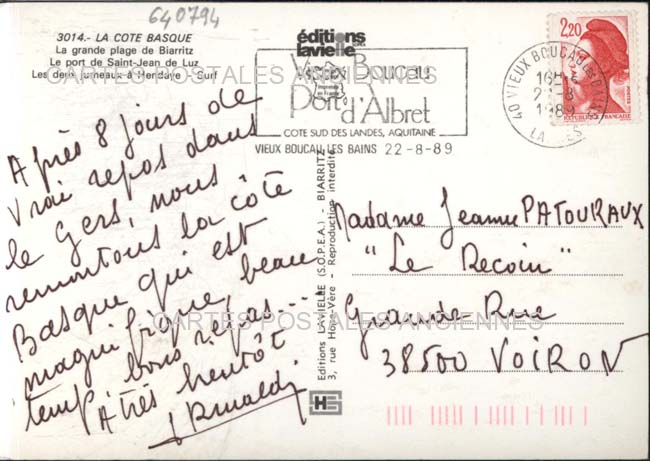 640794
3014.- LA COTE BASQUE
La grande plage de Biarritz
Le port de Saint-Jean de Luz
Les deux jumeaux à Hendaye - Surf
éditions
lavielle
Vieux Boucau
Port d'Albret
COTE SUD DES LANDES, AQUITAINE
VIEUX BOUCAU LES BAINS 22-8-89
2,20
REPUBLIQUE FRANÇAISE
40 VIEUX BOUCAU LES BAINS
16H
22-8
1989
LANDES
CARTES POSTALES ANCIENNES
Après 8 jours de
vrai repos dans
le Gers, nous
remontons la côte
Basque qui est
magnifique, beau
temps bons repas...
A très bientôt
Editions LAVIELLE (S.O.P.E.A.) - BIARRITZ
3, rue Hope-Vère - Reproduction interdite
Madame Jeanne PATOURAUX
"Le Recoin"
Grande Rue
38500 VOIRON
CARTES POSTALES ANCIENNES